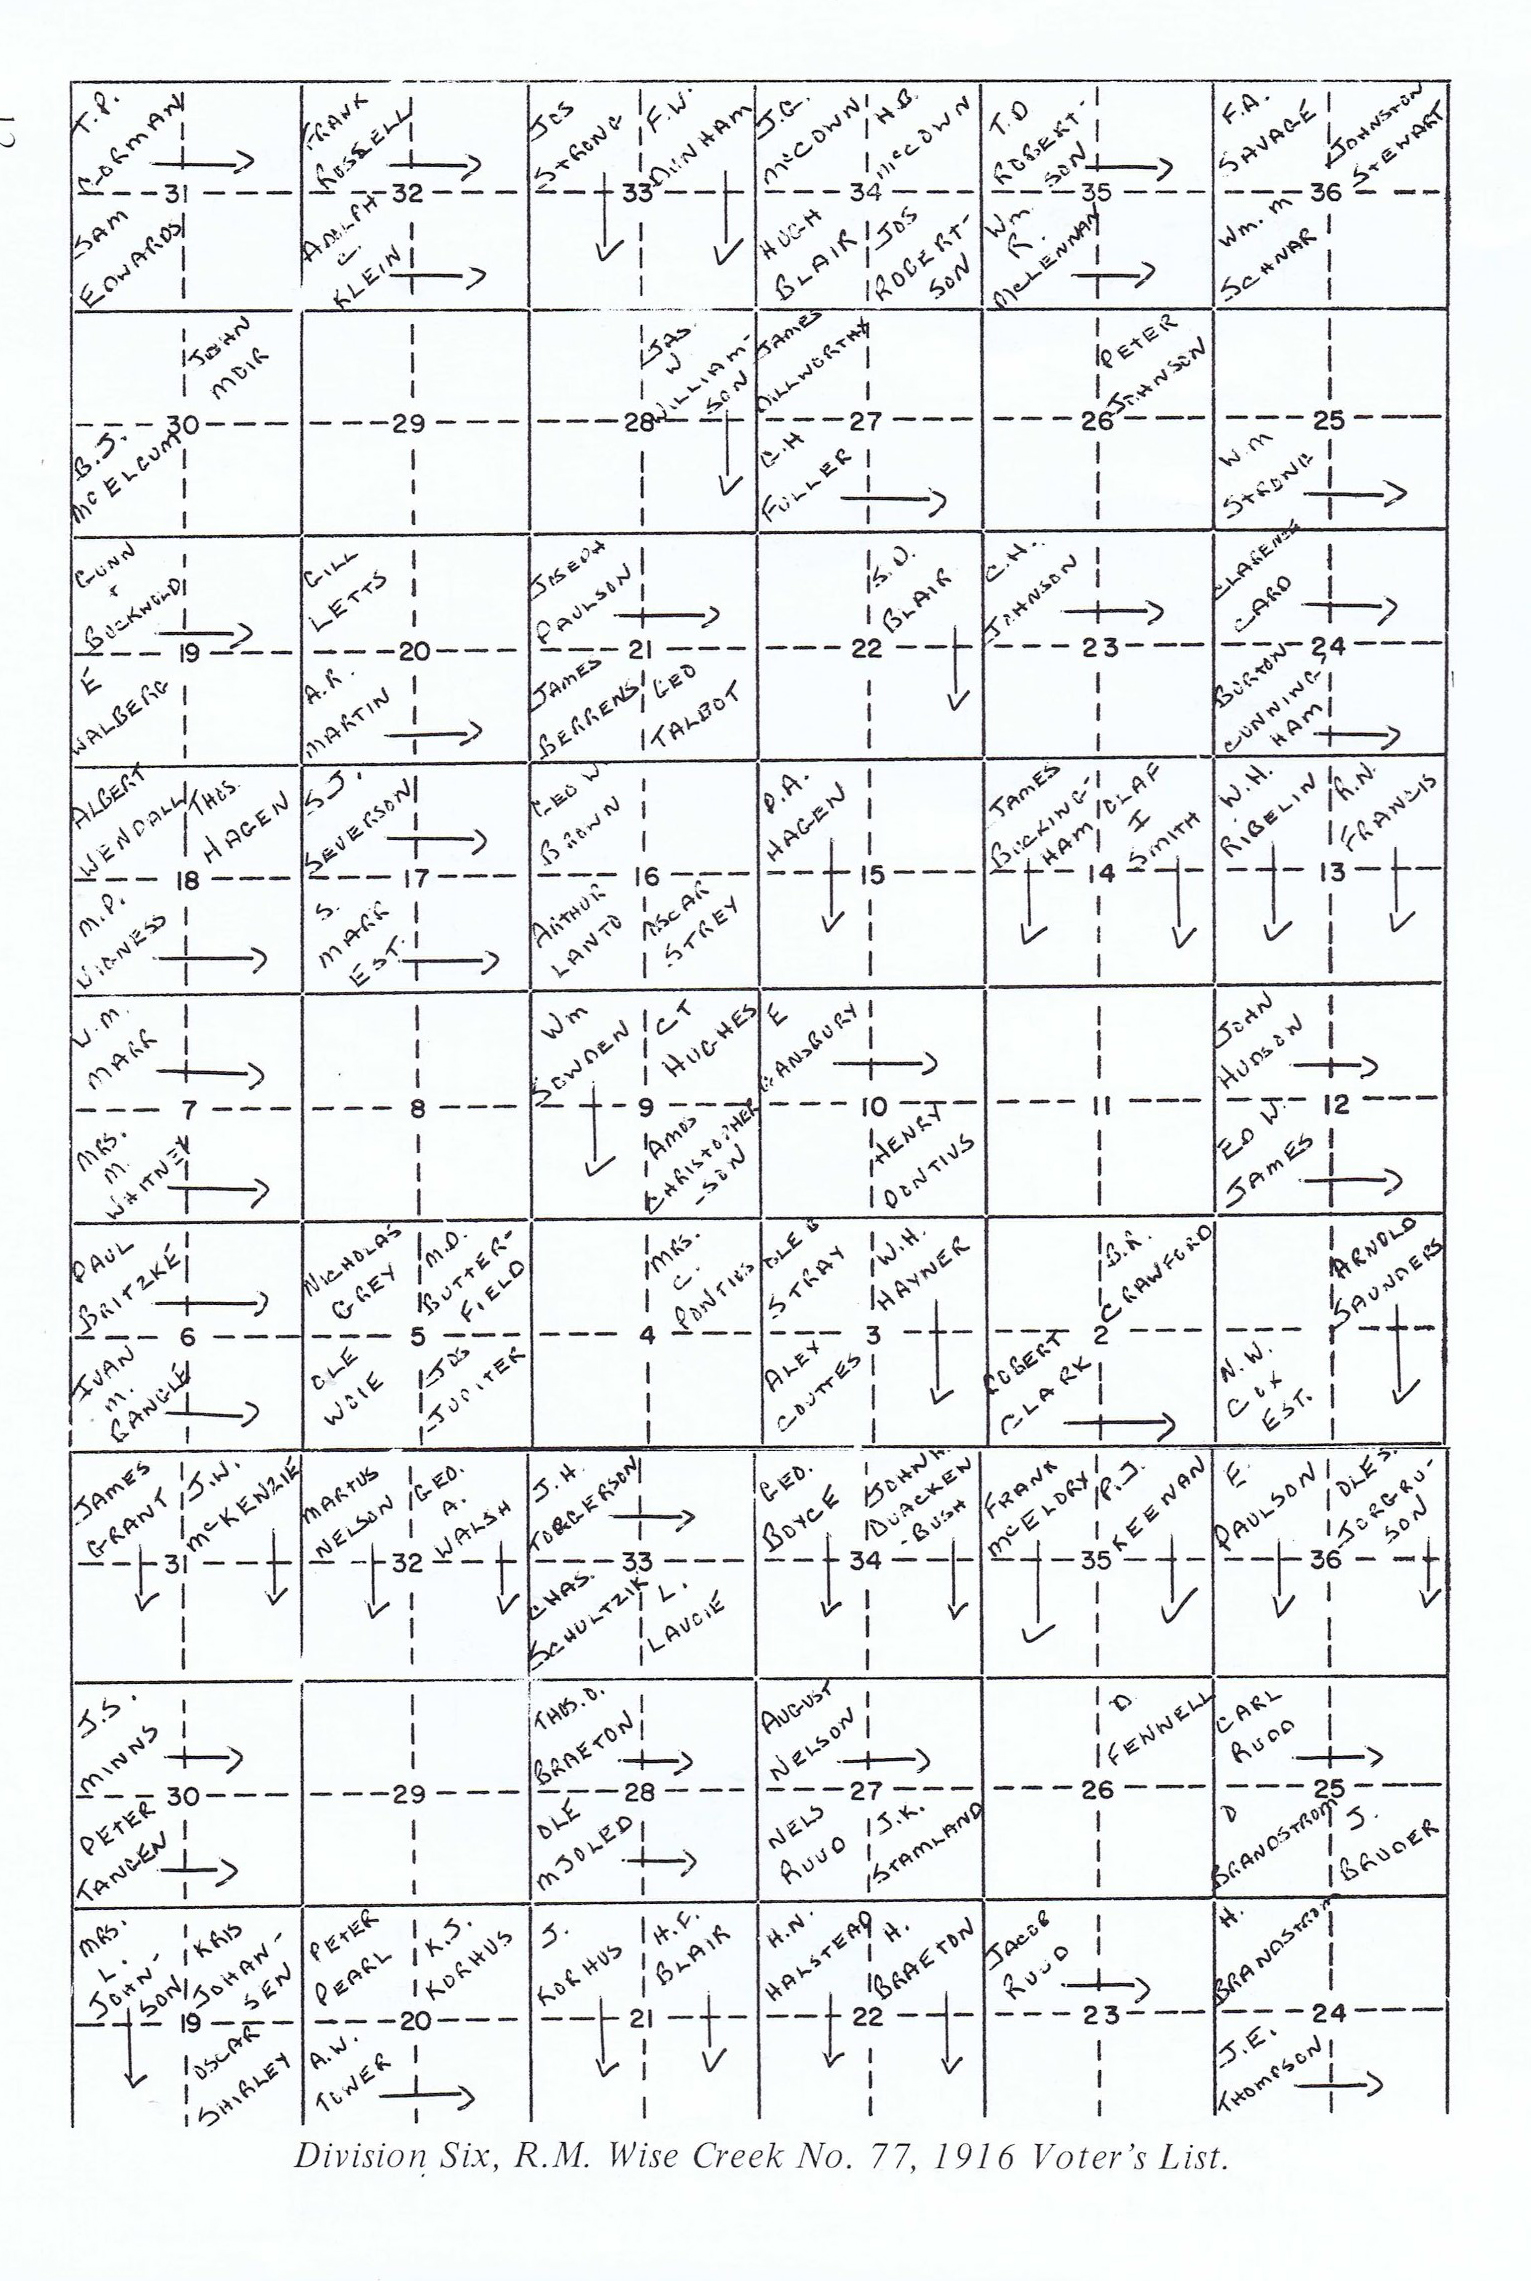 T.P.
GORMAN
31
SAM
EDWARDS
FRANK
ROSSELL
32
ADOLPH
C.
KLEIN
JOS
STRONG
F.W.
DUNHAM
33
J.G.
McCOWN
H.B.
McCOWN
34
HUGH
BLAIR
JOS
ROBERT-
SON
T.D
ROBERT-
SON
35
Wm.
R.
McLENNAN
F.A.
SAVAGE
JOHNSTON
STEWART
36
Wm. M
SCHNAR
JOHN
MOIR
30
B.J.
McELGUM
29
JAS
W
WILLIAM-
SON
28
JAMES
DILLWORTHY
27
C.H
FULLER
PETER
JOHNSON
26
25
W.M
STRONG
GUNN
+
BUCKWOLD
19
E
WALBERG
GILL
LETTS
20
A.R.
MARTIN
JOSEPH
PAULSON
21
JAMES
BERRENS
GEO
TALBOT
S.D.
BLAIR
22
C.H.
JOHNSON
23
CLARENCE
CARD
24
BURTON
CUNNING-
HAM
ALBERT
WENDALL
THOS.
HAGEN
18
M.P.
VIGNESS
S.J.
SEVERSON
17
S.
MARR
EST.
GEO W
BROWN
16
ARTHUR
LANTO
OSCAR
STREY
P.A.
HAGEN
15
JAMES
BUCKING-
HAM
OLAF
I
SMITH
14
W.H.
RIBELIN
R.N.
FRANCIS
13
W.M.
MARR
7
MRS.
M.
WHITNEY
8
Wm
SOWDEN
CT
HUGHES
9
AMOS
CHRISTOPHER
-SON
E
GANSBURY
10
HENRY
PONTIUS
11
JOHN
HUDSON
12
ED W.
JAMES
PAUL
BRITZKE
6
IVAN
M.
GANGLE
NICHOLAS
GREY
M.D.
BUTTER-
FIELD
5
OLE
WOIE
JOS
JUPITER
MRS.
C.
PONTIUS
4
OLE B
STRAY
W.H.
HAYNER
3
ALEX
COUTTES
B.R.
CRAWFORD
2
ROBERT
CLARK
ARNOLD
SAUNDERS
1
N.W.
COX
EST.
JAMES
GRANT
J.W.
McKENZIE
31
MARTUS
NELSON
GEO.
A.
WALSH
32
J.H.
TORGERSON
33
CHAS.
SCHULTZIK
L.
LAVOIE
GEO.
BOYCE
JOHN H
DUACKEN
-BUSH
34
FRANK
McELDRY
P.J.
KEENAN
35
E.
PAULSON
OLE S.
JORGRU-
SON
36
J.S.
MINNS
30
PETER
TANGEN
29
THOS.O.
BRAETON
28
OLE
MJOLED
AUGUST
NELSON
27
NELS
RUUD
J.K.
STAMLAND
D
FENNELL
26
CARL
RUDD
25
D
BRANDSTROM
J.
BRUDER
MRS.
L.
JOHN-
SON
KRIS
JOHAN-
SEN
19
OSCAR
SHIRLEY
PETER
PEARL
K.J.
KORHUS
20
A.W.
TOWER
J.
KORHUS
H.F.
BLAIR
21
H.N.
HALSTEAD
H.
BRAETON
22
JACOB
RUUD
23
H.
BRANDSTROM
24
J.E.
THOMPSON
Division Six, R.M. Wise Creek No. 77, 1916 Voter's List.